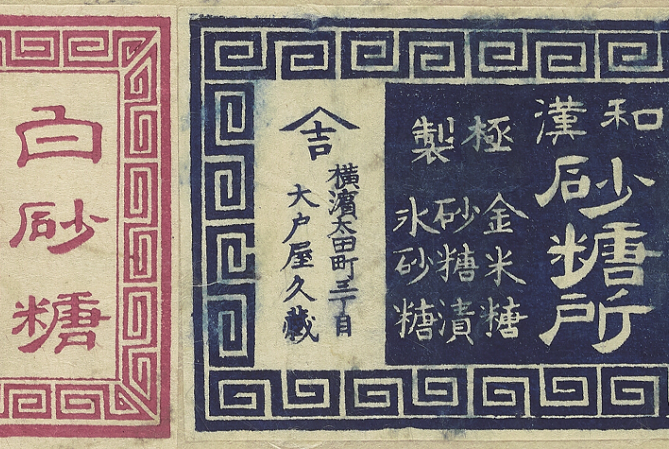 和漢
砂糖所
極製
金米糖
砂糖漬
氷砂糖
吉
横濱太田町三丁目
大戸屋久藏
白砂糖